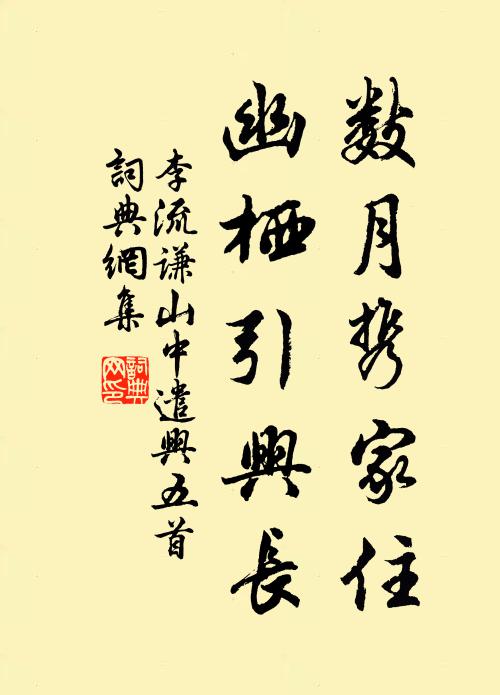 数月携家住
幽栖引興長
李流謙山中遣興五首
詞典網集
詞典網印